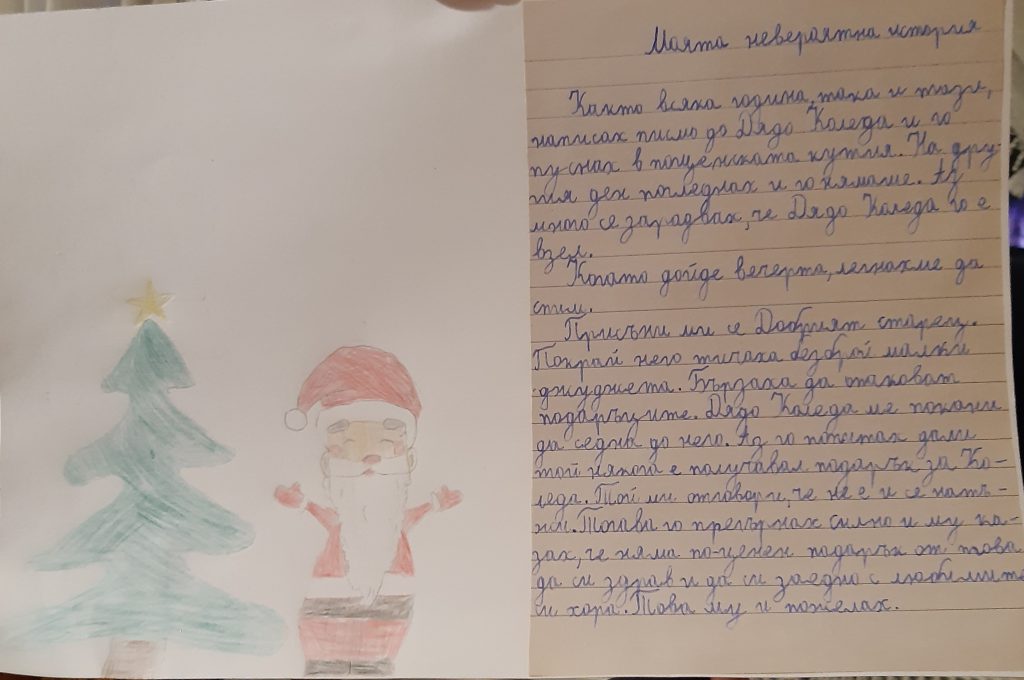 Моята невероятна история
Както всяка година, така и тази,
написах писмо до Дядо Коледа и го
пуснах в пощенската кутия. На дру-
гия ден погледнах и го нямаше. Аз
много се зарадвах, че Дядо Коледа го е
взел.
Когато дойде вечерта, легнахме да
спим.
Присъни ми се Добрият старец.
Покрай него тичаха безброй малки
джуджета. Бързаха да опаковат
подаръците. Дядо Коледа ме покани
да седна до него. Аз го попитах дали
той някога е получавал подарък за Ко-
леда. Той ми отговори, че не е и се натъ-
жи. Тогава го прегърнах силно и му ка-
зах, че няма по-ценен подарък от това
да си здрав и да си заедно с любимите
си хора. Това му и пожелах.